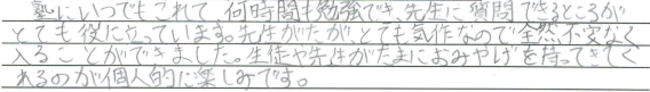 塾にいつでもこれて、何時間も勉強でき、先生に質問できるところが
とても役に立っています。先生がたが、とても気作なので全然不安なく
入ることができました。生徒や先生がたまにおみやげを持ってきてく
れるのが個人的に楽しみです。